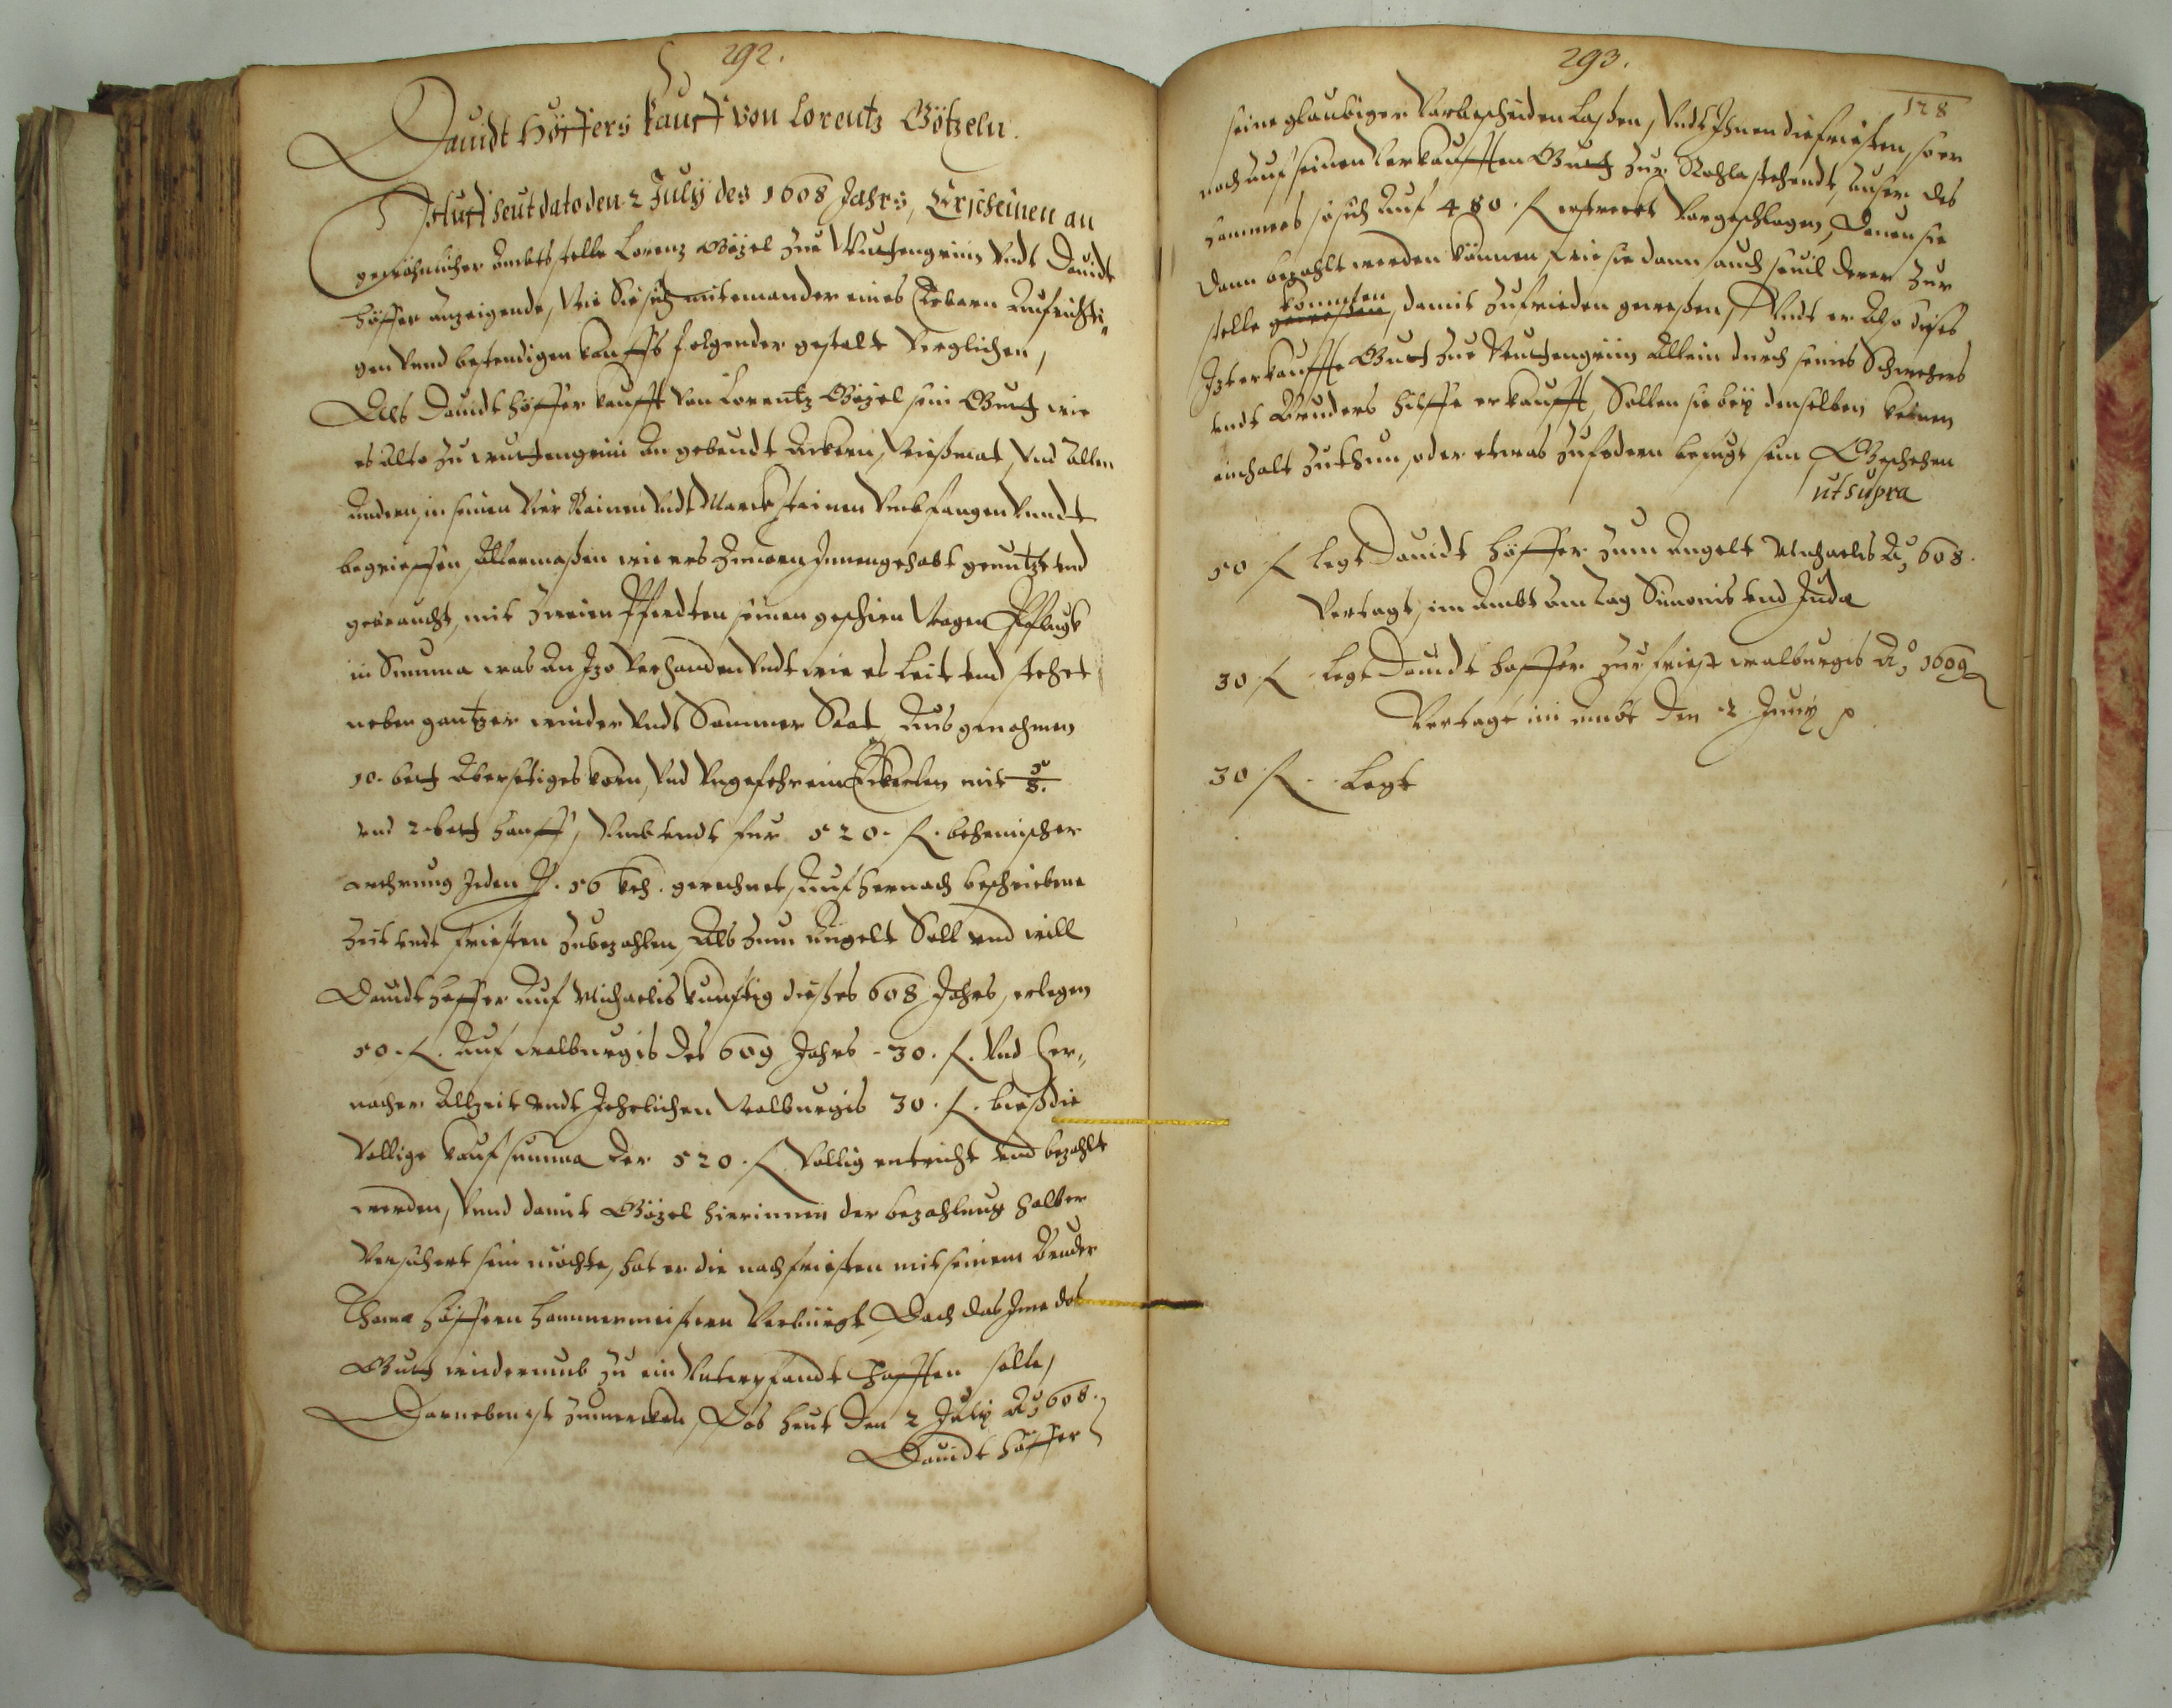 292.
Dauidt Höffers kauff von Lorentz Götzeln.
Auff heut dato den 2 July des 1608 Jahrs, Erscheinen an
gewöhnlicher Ambts stelle Lorenz Gözel zue Muttengrüm Vndt Dauidt
höffer anzeigende, Wie Sie sich miteinander eines Erbarn Aufrichti„
gen Vnnd bestendigen kauffs folgender gestalt Verglichen,
Als Dauidt höffer kaufft Von Lorentz Gözel sein Guett wie
es Alts zu an gebeudt Ackern, Wießmat, Vnd Allen
Andern, in seinen Vier Rainen Vndt Marckstainen Vmbfangen Vnndt
begrieffen, Allermaßen wie ers Innengehabt genutzt vnd
gebraucht, mit Zweien Pferdten seinen geschirr Wagen Pflugk
in Summa was An Jzo Verhanden Vndt wie es leit vnd stehet
neben gantzer winder Vndt Sommer Saat, Ausgenohmen
10. bett Vbersetiges korn, Vnd Vngefehr ein mit
vnd 2 bett hanff, Vmb vndt fur 520. fl. behemischer
wehrung Jeden fl. 56 kr. gerechnet, Auf hernach beschriebene
Zeit vndt friesten Zubezahlen, Als Zum Angelt Soll vnd will
Dauidt höffer Auf Michaelis kunftig dießes 608 Jahrs, erlegen
50. fl. Auf walburgis des 609 Jahrs - 30. fl. Vnd her„
nacher Allzeit vndt Jehrlichen Walburgis 30. fl. bieß die
Vollige kaufsumma der 520. fl. Vollig entricht vnd bezahlt
werden, Vnnd damit Gözel hierinnen der bezahlung halber
Versichert sein möchte, hat er die nachfriesten mit seinem Bruder
Thoma höffern hammermeistern Verbürgt, Doch das Jme das
Guett wiedernmb zu ein Vnterpfandt hafften solle,
Darneben ist zumercken, Das heut den 2 July Ao 608.
Dauidt höffer
293.
128
seine glaubiger Vorbescheiden laßen, Vndt Jhnen die friesten, so er
noch auf seinen Verkaufften Guett Zur stehendt, auser des
hammers so sich Auf 480. fl. erstreckt Vorgeschlagen, Dauon sie
dann bezahlt werden können, wie sie dann auch souil derer Zur
konnten
stelle gewesen, damit Zufrieden gewesen, Vndt er Also dieses
Jzt erkauffte Guett Zue Muttengrüm Allein durch seines Schwehers
vndt Bruders hilffe erkaufft, Sollen sie bey denselben keinen
einhalt Zuthun, oder etwas Zufodern befugt sein, Geschehen
ut supra
50 fl legt Dauidt höffer Zum Angelt Michaelis Ao 608.
Vertagt, im Ambt am tag Simonis vnd Juda
30 fl legt Dauidt höffer Zur friest walburgis Ao 1609
Vertagt im ambt den 2 Juny
30 fl. legt